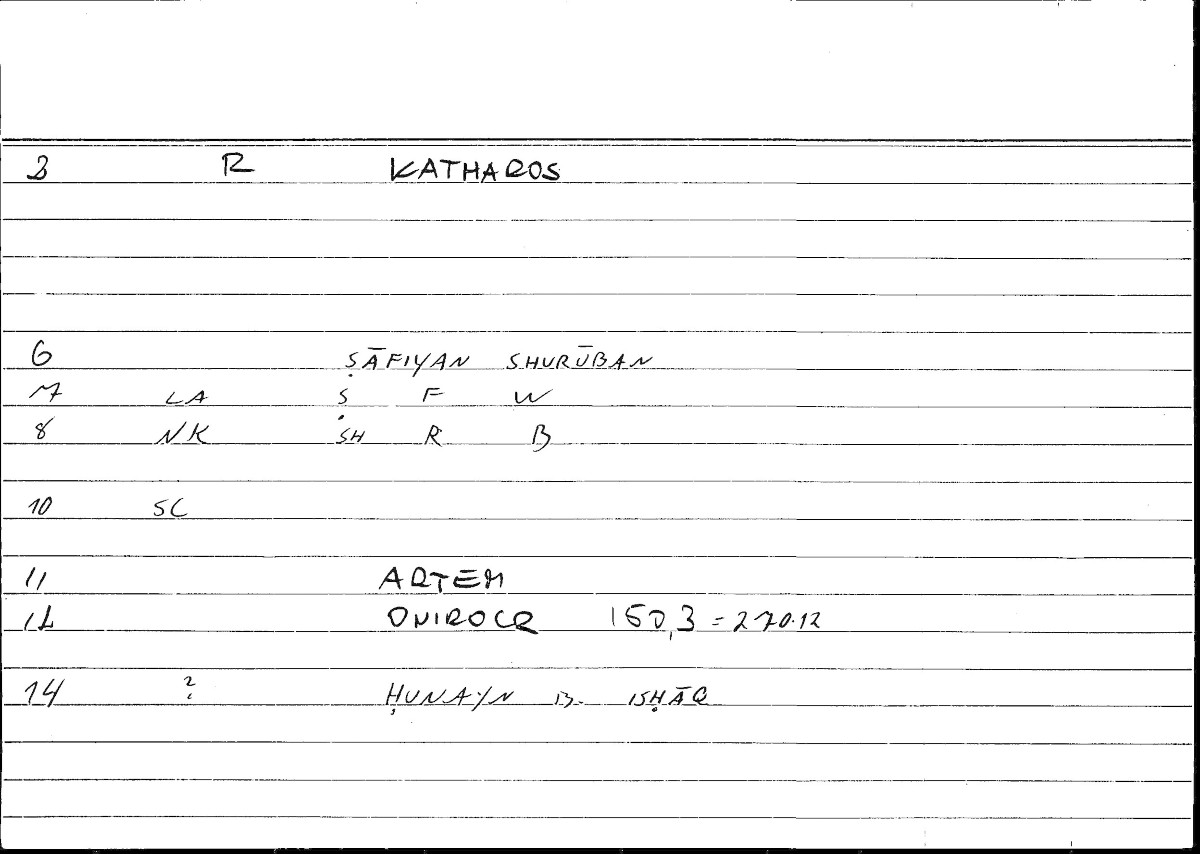 3 R KATHAROS
6 ṢĀFIYAN SHURŪBAN
7 LA Ṣ F W
8 NK SH R B
10 SC
11 ARTEM
12 ONIROCR 150,3 = 270.12
14 ? ḤUNAYN B. ISḤĀQ